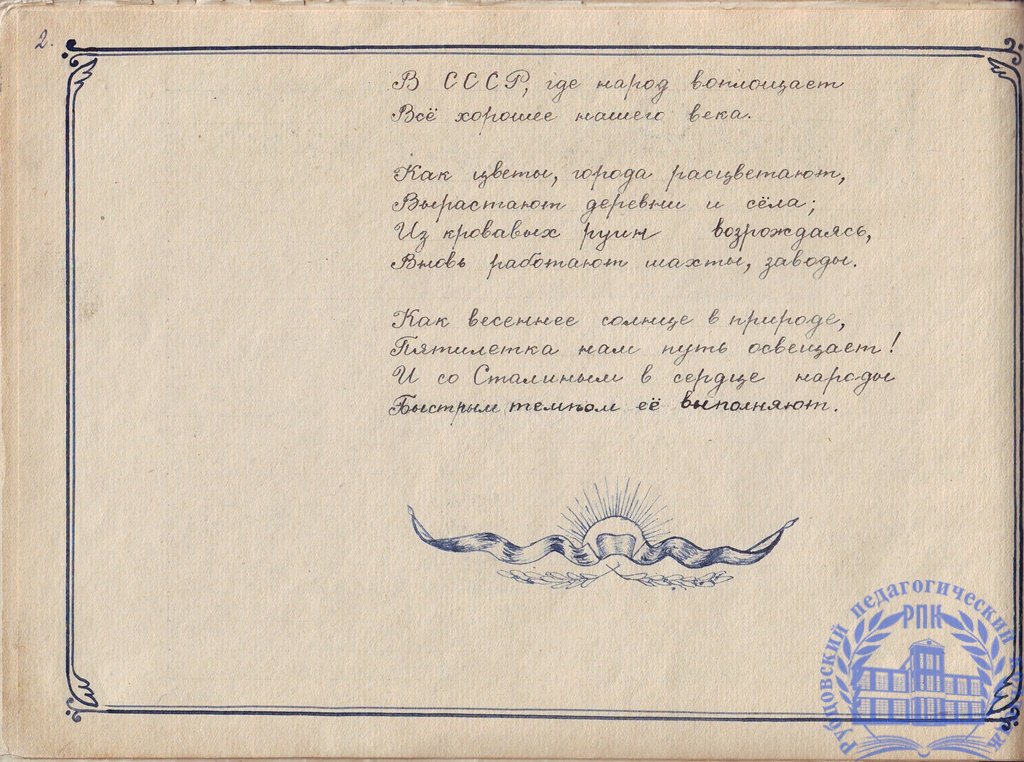 2.
В СССР, где народ воплощает
Всё хорошее нашего века.
Как цветы, города расцветают,
Вырастают деревни и сёла;
Из кровавых руин возрождаясь,
Вновь работают шахты, заводы.
Как весеннее солнце в природе,
Пятилетка нам путь освещает!
И со Сталиным в сердце народы
Быстрым темпом её выполняют.
Рубцовский педагогический
РПК